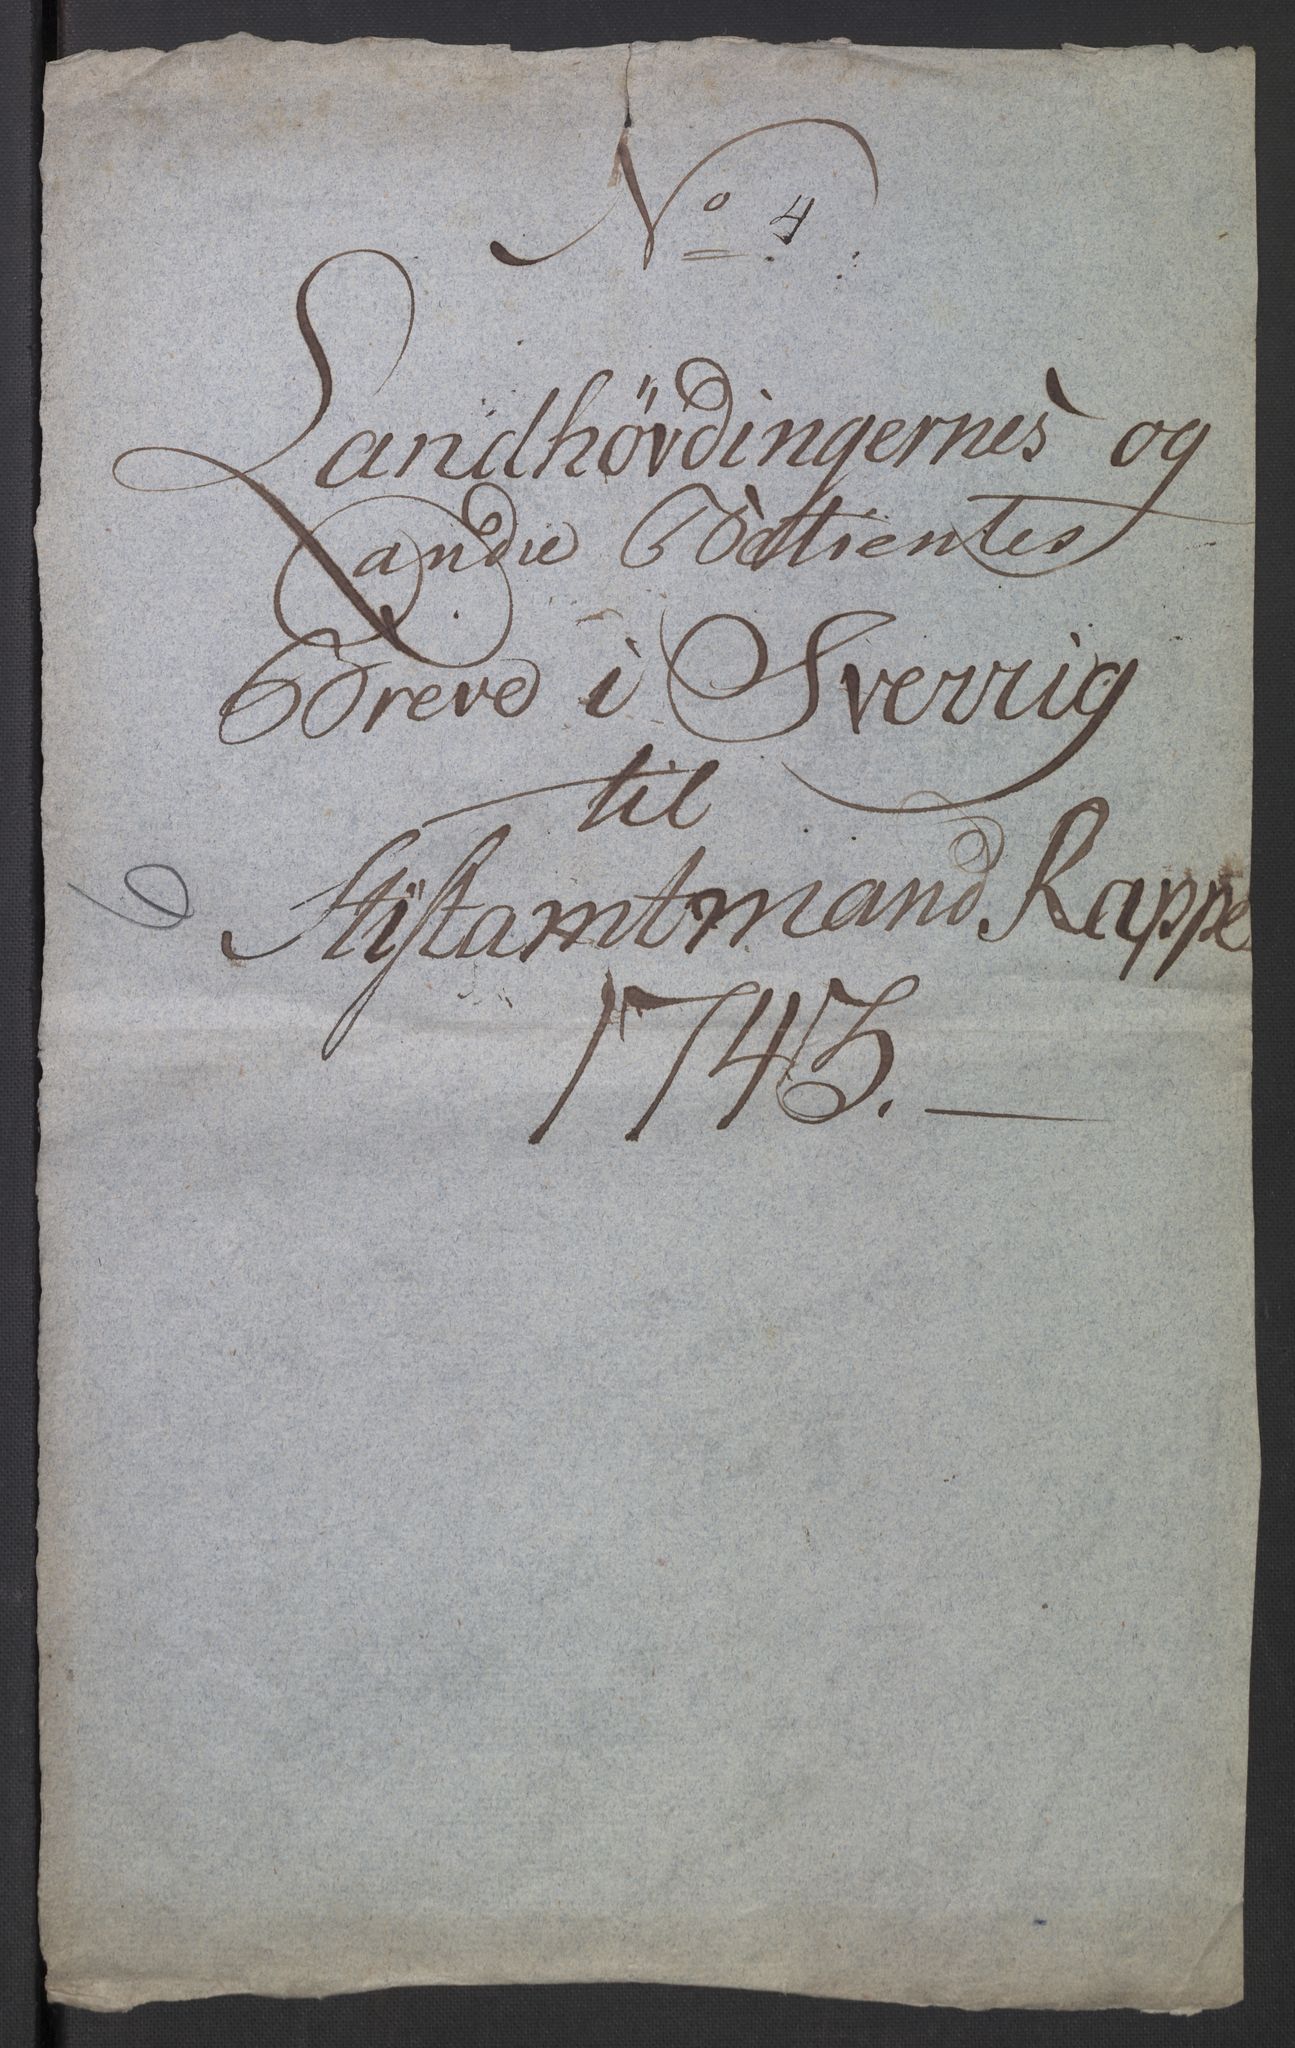 No 4
Landhövdingernes og
andre Betientes
Breve i Sverrig
til
Stiftamtmand Rappe
1743.